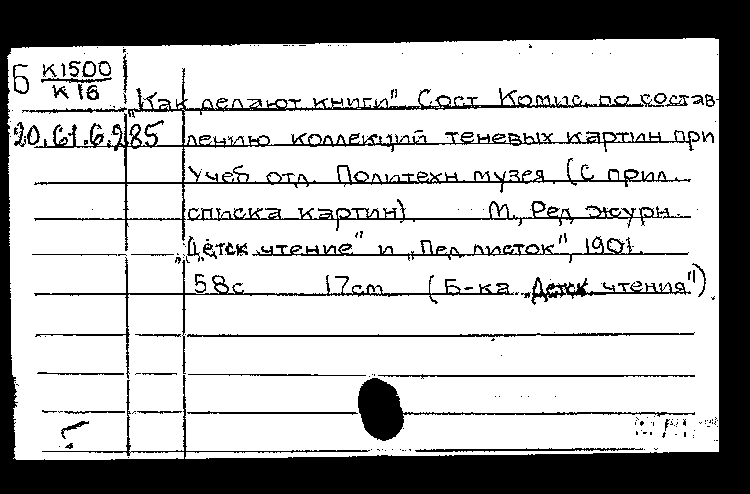 Б К1500
К 16
„Как делают книги" Сост. Комис. по состав-
20.61.6.285 лению коллекций теневых картин при
Учеб. отд. Политехн. музея. (С прил.
списка картин). М., Ред. журн.
„Детск. чтение" и „Пед. листок", 1901.
58с. 17см. (Б-ка „Детск. чтения").